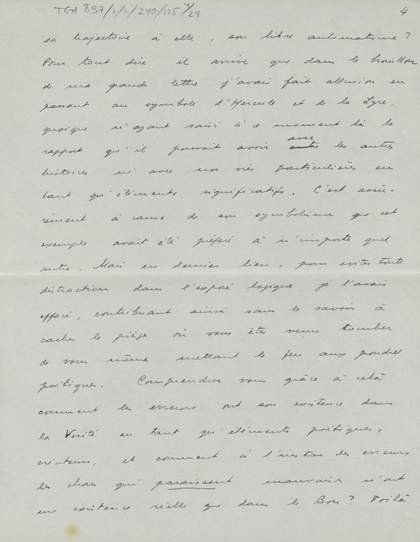 TGA 897/1/1/240/125 4/24
4
sa trajectoire à elle, son libre automatisme?
Pour tout dire il arrive que dans le brouillon
de ma grande lettre j'avais fait allusion en
passant au symbole d'Hercule et de la Lyre,
quoique n'ayant saisi à ce moment là le
rapport qu'il pouvait avoir avec les autres
histoires ni avec nos vies particulières en
tant qu'éléments significatifs. C'est assu-
rément à cause de son symbolisme que cet
exemple avait été préféré à n'importe quel
autre. Mais en dernier lieu, pour éviter toute
distraction dans l'exposé logique je l'avais
effacé, contribuant ainsi sans le savoir à
cacher le piège où vous êtes venu tomber
de vous même mettant le feu aux poudres
poétiques. Comprendrez vous grâce à cela
comment les erreurs ont son existence dans
la Vérité en tant qu'éléments poétiques,
créateurs, et comment à l'instar des erreurs
les choses qui paraissent mauvaises n'ont
une existence réelle que dans le Bon? Voilà